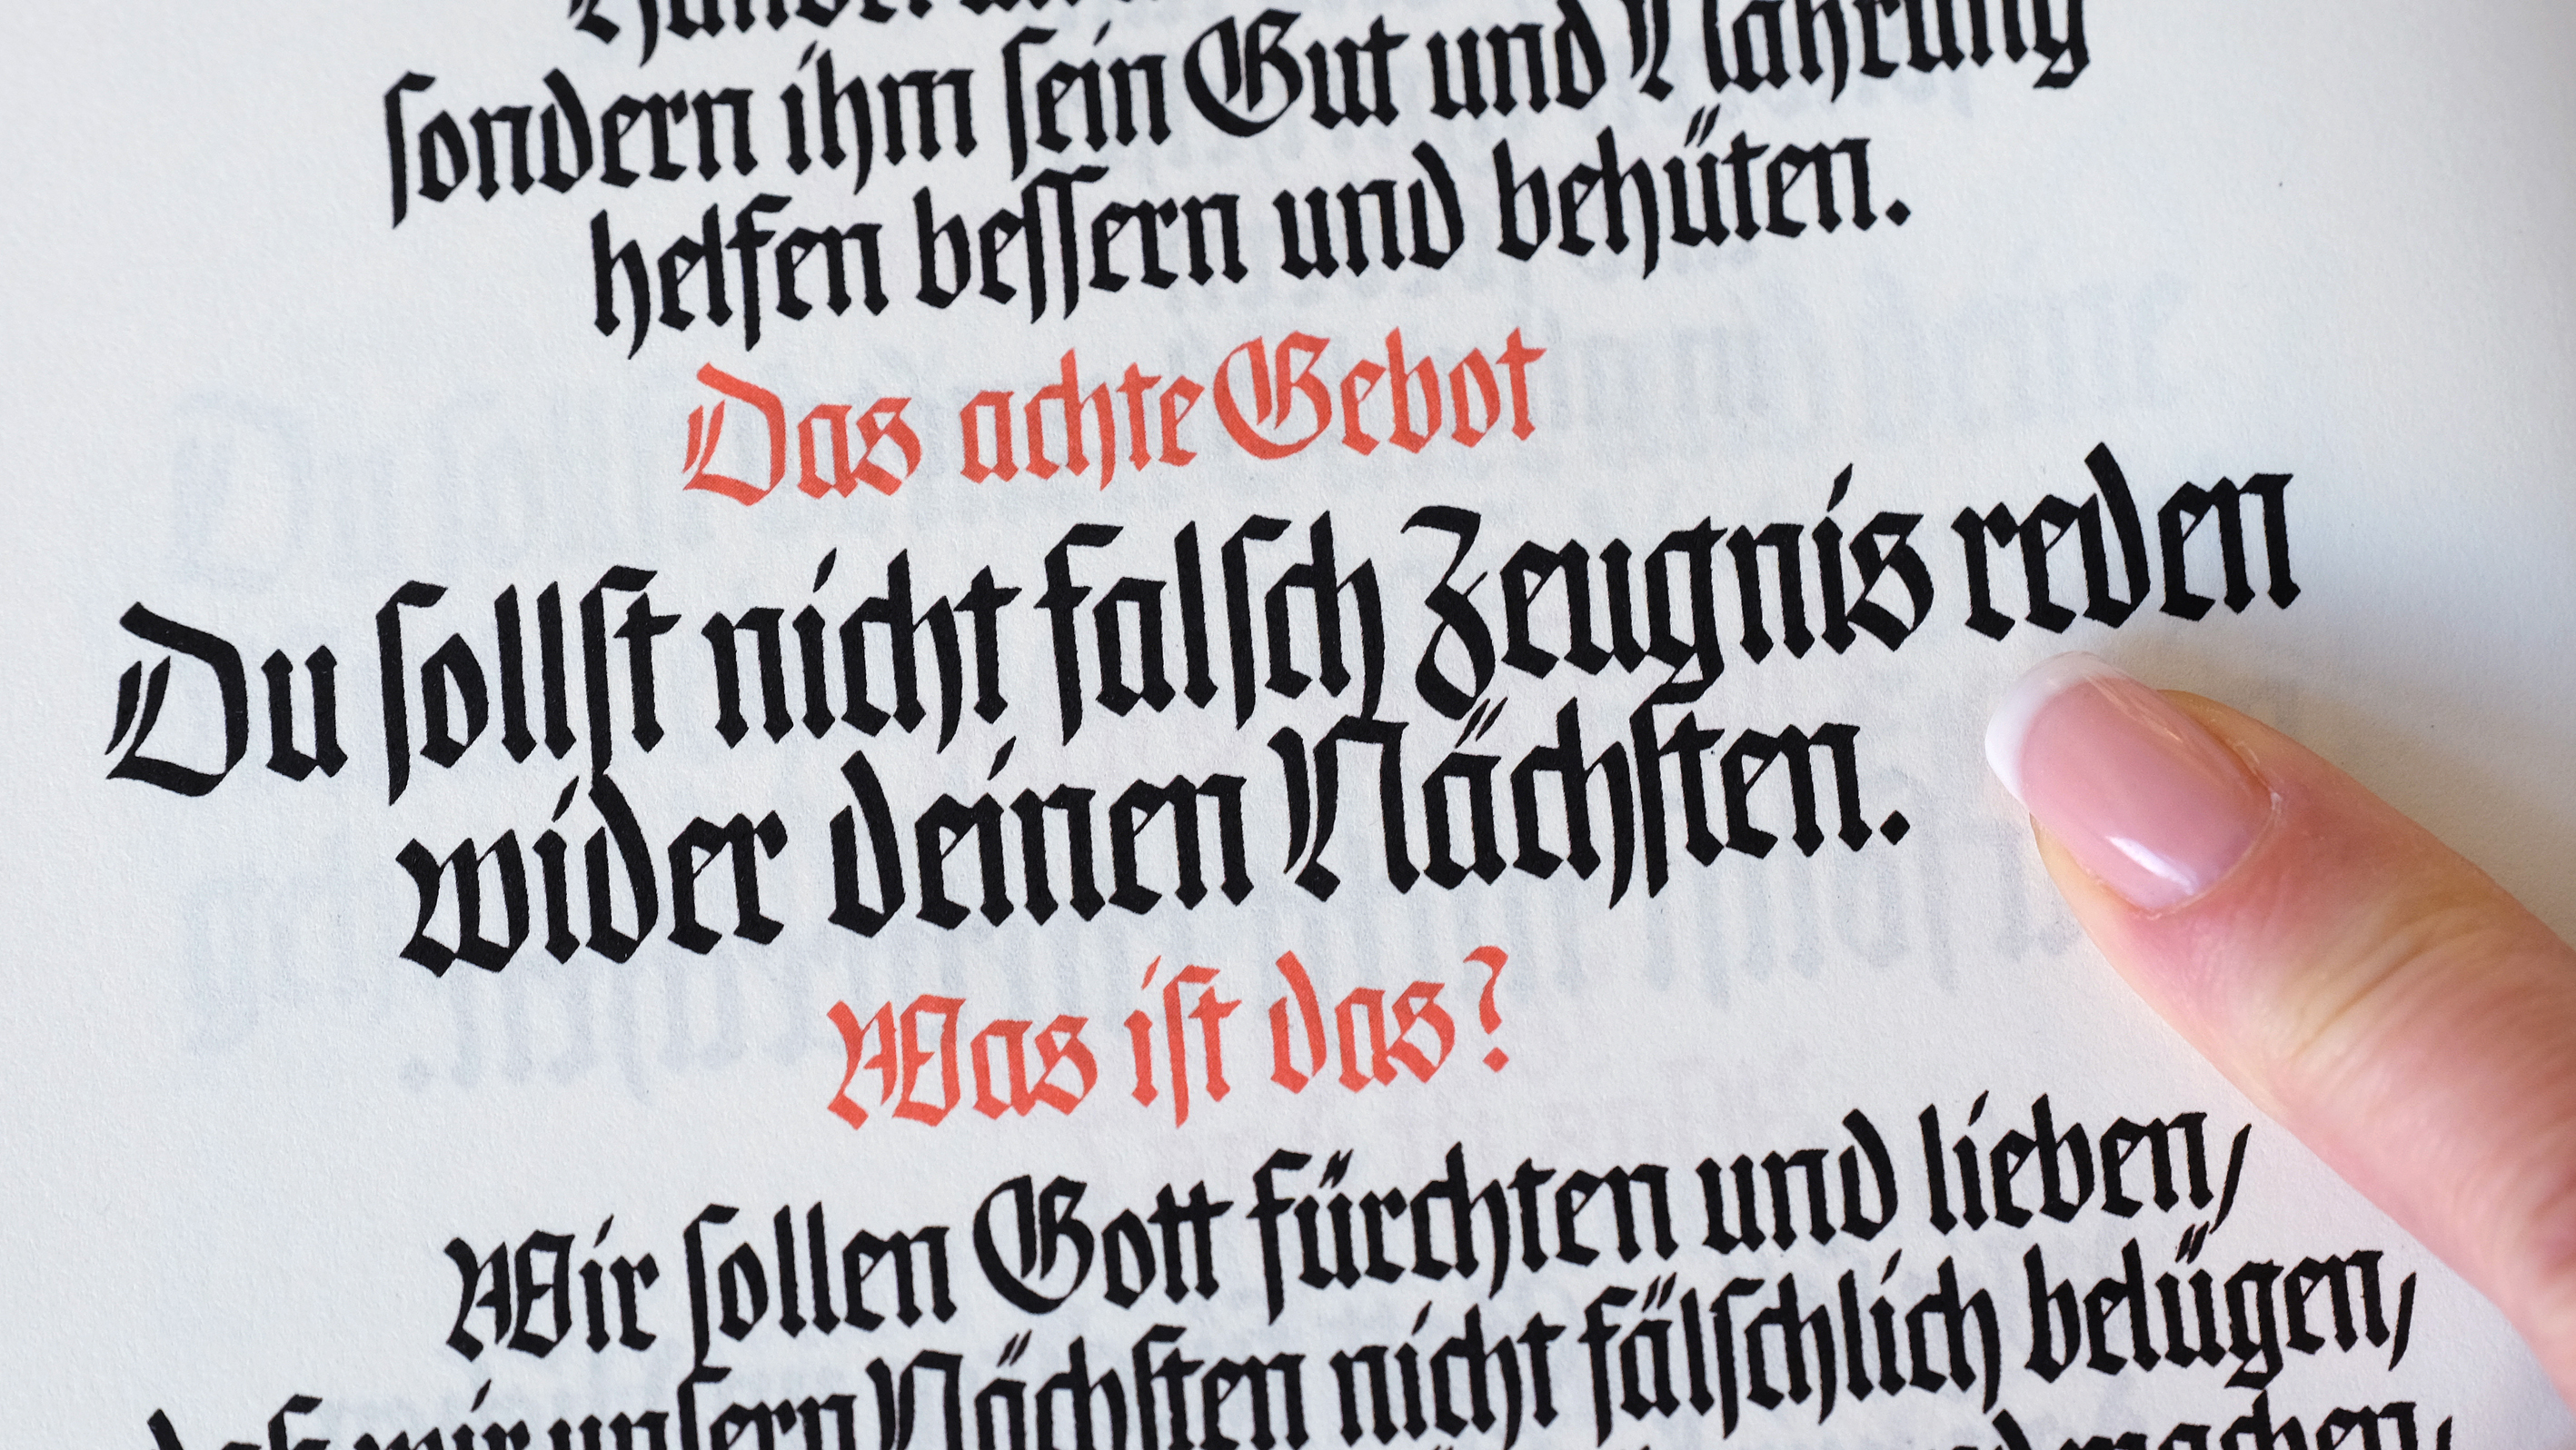 ſondern ihm ſein Gut und Nahrung
helfen beſſern und behüten.
Das achte Gebot
Du ſollſt nicht falſch Zeugnis reden
wider deinen Nächſten.
Was iſt das?
Wir ſollen Gott fürchten und lieben,
daß wir unſern Nächſten nicht fälſchlich belügen,